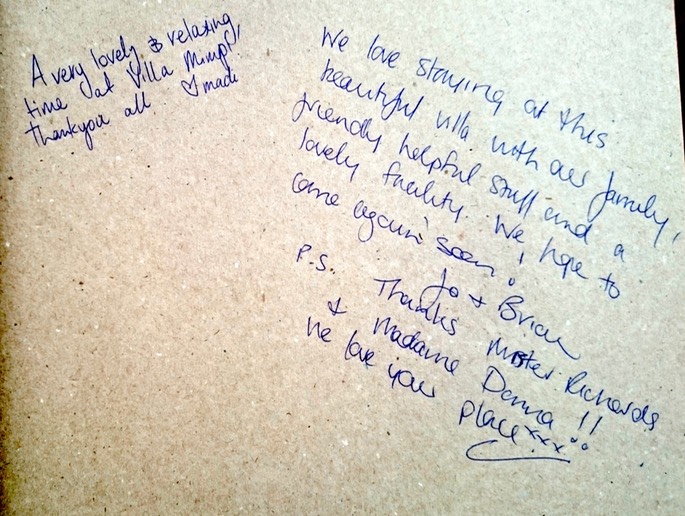 A very lovely & relaxing
time at Villa Mumpf,
thankyou all made
We love staying at this
beautiful villa with our family,
friendly helpful staff and a
lovely facility. We hope to
come again soon!
Jo + Brian
P.S. Thanks Mister Richards
& Madame Donna !!
We love your
place xxx